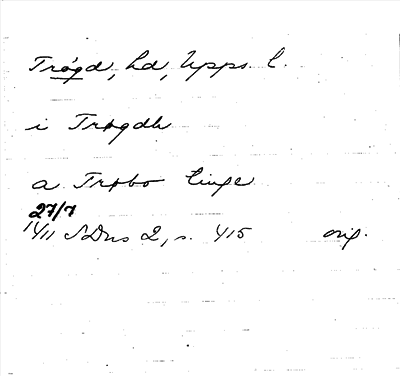 Trögd, hd, Upps. l.
i Trøgdh
a Trøbo linge
27/7
1411 SDns 2, s. 415 orig.